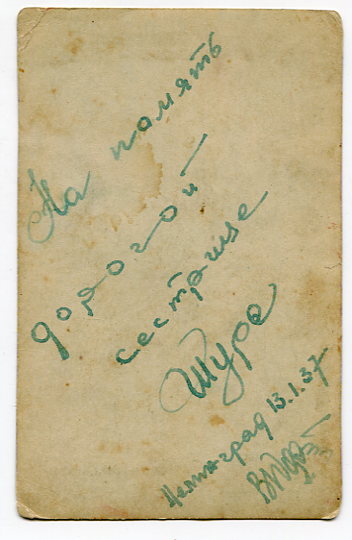 На помять
дорогой
сестрице
Шуре
Ленинград 13.1.37